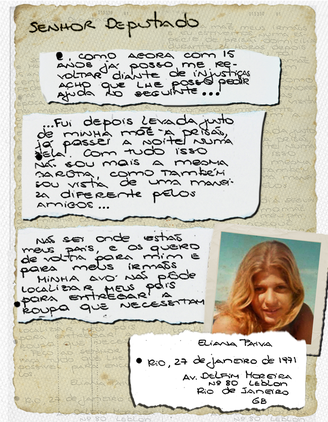 SENHOR DEPUTADO
E, COMO AGORA COM 15
ANOS JÁ POSSO ME RE-
VOLTAR DIANTE DE INJUSTIÇAS
ACHO QUE LHE POSSO PEDIR
AJUDA NO SEGUINTE...
...FUI DEPOIS LEVADA JUNTO
DE MINHA MÃE A PRISÃO,
JÁ PASSEI A NOITE NUMA
CELA. COM TUDO ISSO
NÃO SOU MAIS A MESMA
GAROTA, COMO TAMBÉM
SOU VISTA DE UMA MANEI-
RA DIFERENTE PELOS
AMIGOS...
NÃO SEI ONDE ESTÃO
MEUS PAIS, E OS QUERO
DE VOLTA PARA MIM E
PARA MEUS IRMÃOS
MINHA AVÓ NÃO PÔDE
LOCALIZAR MEUS PAIS
PARA ENTREGAR A
ROUPA QUE NECESSITAM
ELIANA PAIVA
RIO, 27 de janeiro de 1971
AV. DELFIM MOREIRA
Nº 80 LEBLON
RIO DE JANEIRO
GB